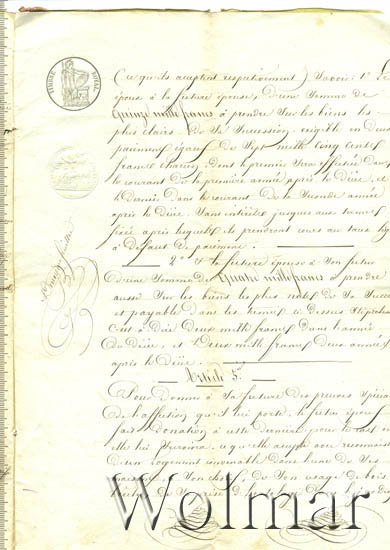 TIMBRE ROYAL
(ce qu'ils acceptent respectivement) Savoir: 1° Le
époux à la future épouse, d'une Somme de
Quinze mille francs à prendre Sur les biens les
plus clairs de Sa Succession, exigible en deux
paiements égaux de Sept mille cinq cents
francs chacun, dont le premier Sera effectué dans
le courant de la première année après le Décès, et
le Dernier dans le courant de la Seconde année
après le Décès, Sans intérêts jusques aux termes
fixés après lesquels ils prendront cours au taux lég
à défaut de paiement.
2° et la future épouse à Son futur
d'une Somme de Quatre mille francs à prendre
aussi Sur les biens les plus nets de Sa Succe
et payable dans les termes ci dessus Stipulés
C'est à Dire Deux mille francs dans l'année
du Décès, et Deux mille francs deux années
après le Décès.
Article 5.me
Pour donner à Sa future des preuves Spécial
de l'affection qu'il lui porte, le futur époux
fait donation à cette dernière pour le cas où
elle lui Survivra, ce qu'elle accepte avec reconnaiss
D'un logement convenable dans l'une de Ses
maisons, Son choix, de Son usage de bois
Wolmar